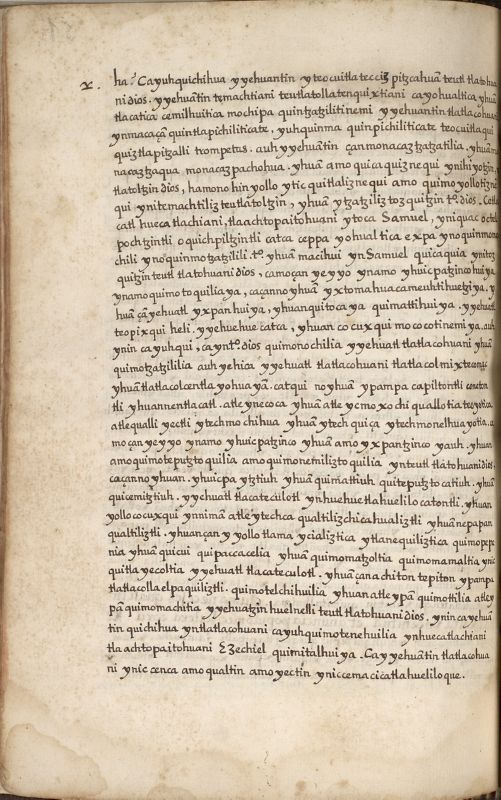 ẍ. ha? Cayuhquichihua yyehuantin yteocuitlateccizpitzcahuā teutl tlatohua
nidios. yyehuātin temachtiani teutlatollatenquixtiani cayohualtica yhuā
tlacatica cemilhuitica mochipa quintzatzilitinemi yyehuantin tlatlacohuani
ynmacaçā quintlapichiliticate. yuhquinma quinpichiliticate teocuitlaqui
quiztlapitzalli trompetas. auh yyehuātin çanmonacaztzatzatilia. yhuā mo
nacaztzatzaqua monacazpachohua. yhuā amo quicaquiznequi ynihiyotzin,
tlatoltzin dios, hamono hin yollo ytic quitlaliznequi amo quimoyollotizne
qui ynitemachtilizteutlatoltzin, yhuā ytzatziliztozquitzin to. dios. Cetla
catl huecatlachiani, tlaachtopaitohuani ytoca Samuel, yniquac octel
pochtzintli oquichpiltzintli catca ceppa yohualtica expa ynoquinmono
chili ynoquinmotzatzilili. to. yhuā macihui yn Samuel quicaquia ynitoz
quitzin teutl tlatohuani dios, camoçan yeyyo ynamo yhuicpatzinco huiya,
ynamo quimotoquiliaya, caçanno yhuā yxtomahuacameuhtihuetziya. y
huā çā yehuatl yxpanhuiya, yhuanquitocaya quimattihuiya. yyehuatl
teopixqui heli. yyehuehue catca, yhuan cocuxqui mococotinemiya. auh
ynin cayuhqui, cayn to. dios quimonochilia yyehuatl tlatlacohuani yhuā
quimotzatzililia auh yehica yyehuatl tlatlacohuani tlatlacolmixtecomac
yhuā tlatlacolcentlayohuayā. catqui noyhuā ypampa capiltontli coneton
tli yhuannentlacatl. atleynecoca yhuā atle ycmoxochiquallotia teoyotica
atlequalli yectli ytechmochihua yhuā ytech quiça ytechmonelhuayotia. a
moçan yeyyo ynamo yhuicpatzinco yhuā amo yxpantzinco yauh. yhuan
amoquimoteputztoquilia amoquimonemiliztoquilia ynteutl tlatohuani dios.
caçanno yhuan. yhuicpa ytztiuh yhuā quimattiuh quiteputztocatiuh. yhuā
quicemitztiuh. yyehuatl tlacateculotl ynhuehuetlahuelilocatontli. yhuan
yollococuxqui ynnimā atle ytechca qualtilizchicahualiztli yhuā nepapan
qualtiliztli. yhuan çan y yollo tlama ycializtica ytlanequiliztica quimopepe
nia yhuā quicui quipaccacelia yhuā quimomatzoltia quimomamaltia ynic
quitlayecoltia yyehuatl tlacateculotl. yhuā çan achiton tepiton ypampa
tlatlacollaelpaquiliztli. quimotelchihuilia yhuan atle ypā quimottilia atley
pā quimomachitia yyehuatzin huelnelli teutl tlatohuani dios. ynin ca yehuā
tin quichihua yntlatlacohuani cayuhquimotenehuilia ynhuecatlachiani
tlaachtopaitohuani Ezechiel quimitalhuiya. Cayyehuātin tlatlacohua
ni ynic cenca amoqualtin amoyectin yniccemacicatlahueliloque.